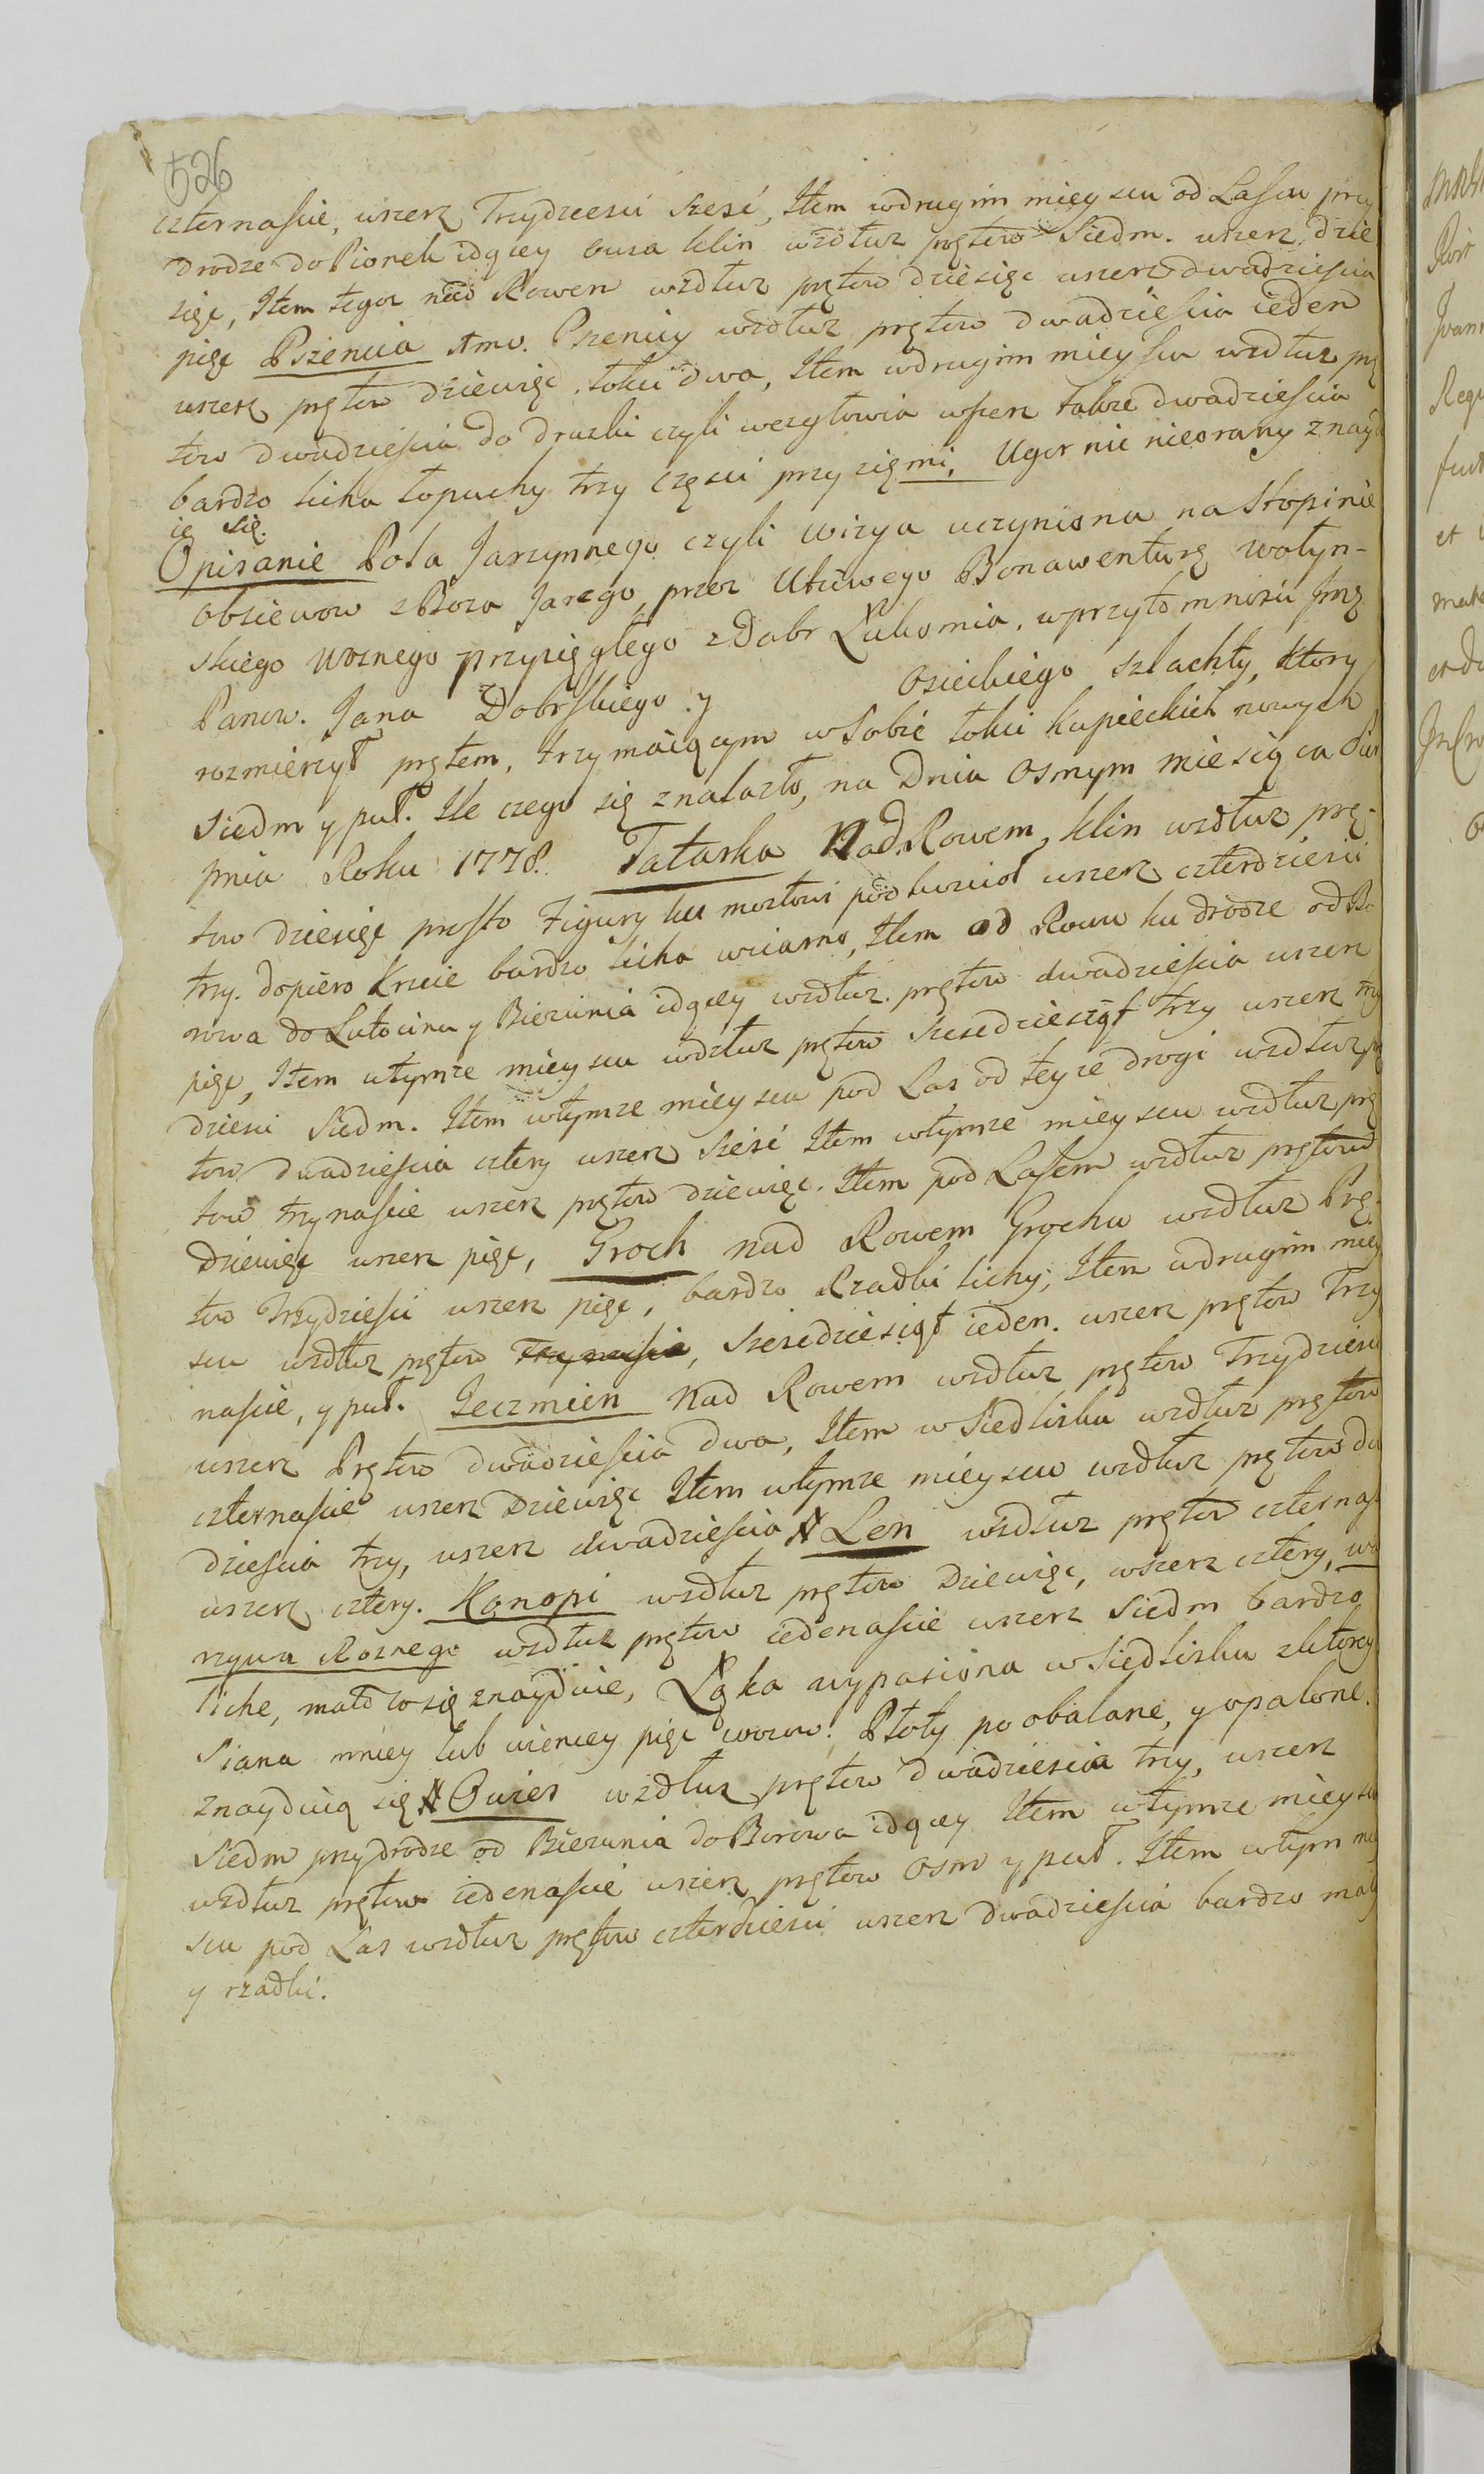 526
czternaście, wszerz Trzydziesci szesć, Item wdrugim mieyscu od Lassu przy
drodze do Pionek idącey Owsa klin wzdłuz prętow Siedm. wszerz dzie
sięć, Item tegoz nad Rowem wzdłuz prętow dziesięc wszerz dwadziescia
pięc Pszenica Pszenicy wzdłuz prętow dwadziescia ieden
wszerz prętow dziewięc, łokci dwa, Item wdrugim mieyscu wzdłuz prę
tow dwadziescia do druzki czyli wezgłowia wszerz takze dwadziescia
bardzo licha łopuchy trzy części przy zięmi, Ugor nie nieorany znayd
ie się.
Opisanie Pola Jarzynnego czyli wizya uczyniona na Stopinie
Obsiewow zBoza Jarego przez Utciwego Bonawenturę Wołyn-
skiego Woznego przysięgłego zDobr Lukomia, wprzytomnosci Imę
Panow. Jana Dobrskiego y Osieckiego szlachty, ktory
rozmierzył prętem, trzymaiącym wSobie łokci kupieckich nowych
Siedm y puł. Ile czego się znalazło, na Dniu Osmym miesiąca Sier
pnia Roku 1778. Tatarka Nad Rowem, klin wzdłuz prę-
tow dziesięc prosto Figury ku mostowi pod wszerz czterdziesci
trzy. dopiero kwie bardzo licha wziarno, Item od Rowu ku drodze od Bo
rowa do Lutocina y Biezunia idącey wzdłuz. prętow dwadziescia wszerz
pięc, Item wtymze mieyscu wzdłuz prętow Szescdziesiąt trzy wszerz trzy
dziesci Siedm. Item wtymze mieyscu pod Las od teyze drogi wzdłuz prę
tow dwadziescia cztery wszerz szesć Item wtymze mieyscu wzdłuz prę
tow trzynascie wszerz prętow dziewięc. Item pod Lasem wzdłuz prętow
Dziewięc wszerz pięc, Groch nad Rowem Grochu wzdłuz Prę-
tow Trzydziesci wszerz pięc, bardzo Rzadki lichy, Item wdrugim miey
scu wzdłuz prętow Trzynascie, Szescdziesiąt ieden. wszerz prętow Trzy
nascie, y puł. Jeczmien Nad Rowem wzdłuz prętow Trzydziesci
wszerz Prętow dwadziescia dwa, Item wSiedlisku wzdłuz prętow
czternascie wszerz Dziewięc Item wtymze mieyscu wzdłuz prętow dwa
dziescia trzy, wszerz dwadziescia Len wzdłuz prętow czternas
wszerz cztery. Konopi wzdłuz prętow Dziewięc, wszerz cztery, wa
rzywa Roznego wzdłuz prętow iedenascie wszerz Siedm bardzo
liche, mało co się znayduie, Łąka wypasiona wSiedlisku zktorey
Siana mniey lub wiencey pięc wozow. Płoty poobalane, y opalone.
Znayduią się Owies wzdłuz prętow dwadziescia trzy, wszerz
Siedm przydrodze od Biezunia do Borowa idącey Item wtymze mieyscu
wzdłuz prętow iedenascie wszerz prętow osm y puł. Item wtym mie
scu pod Las wzdłuz prętow czterdziesci wszerz dwadziescia bardzo mały
y rzadki.